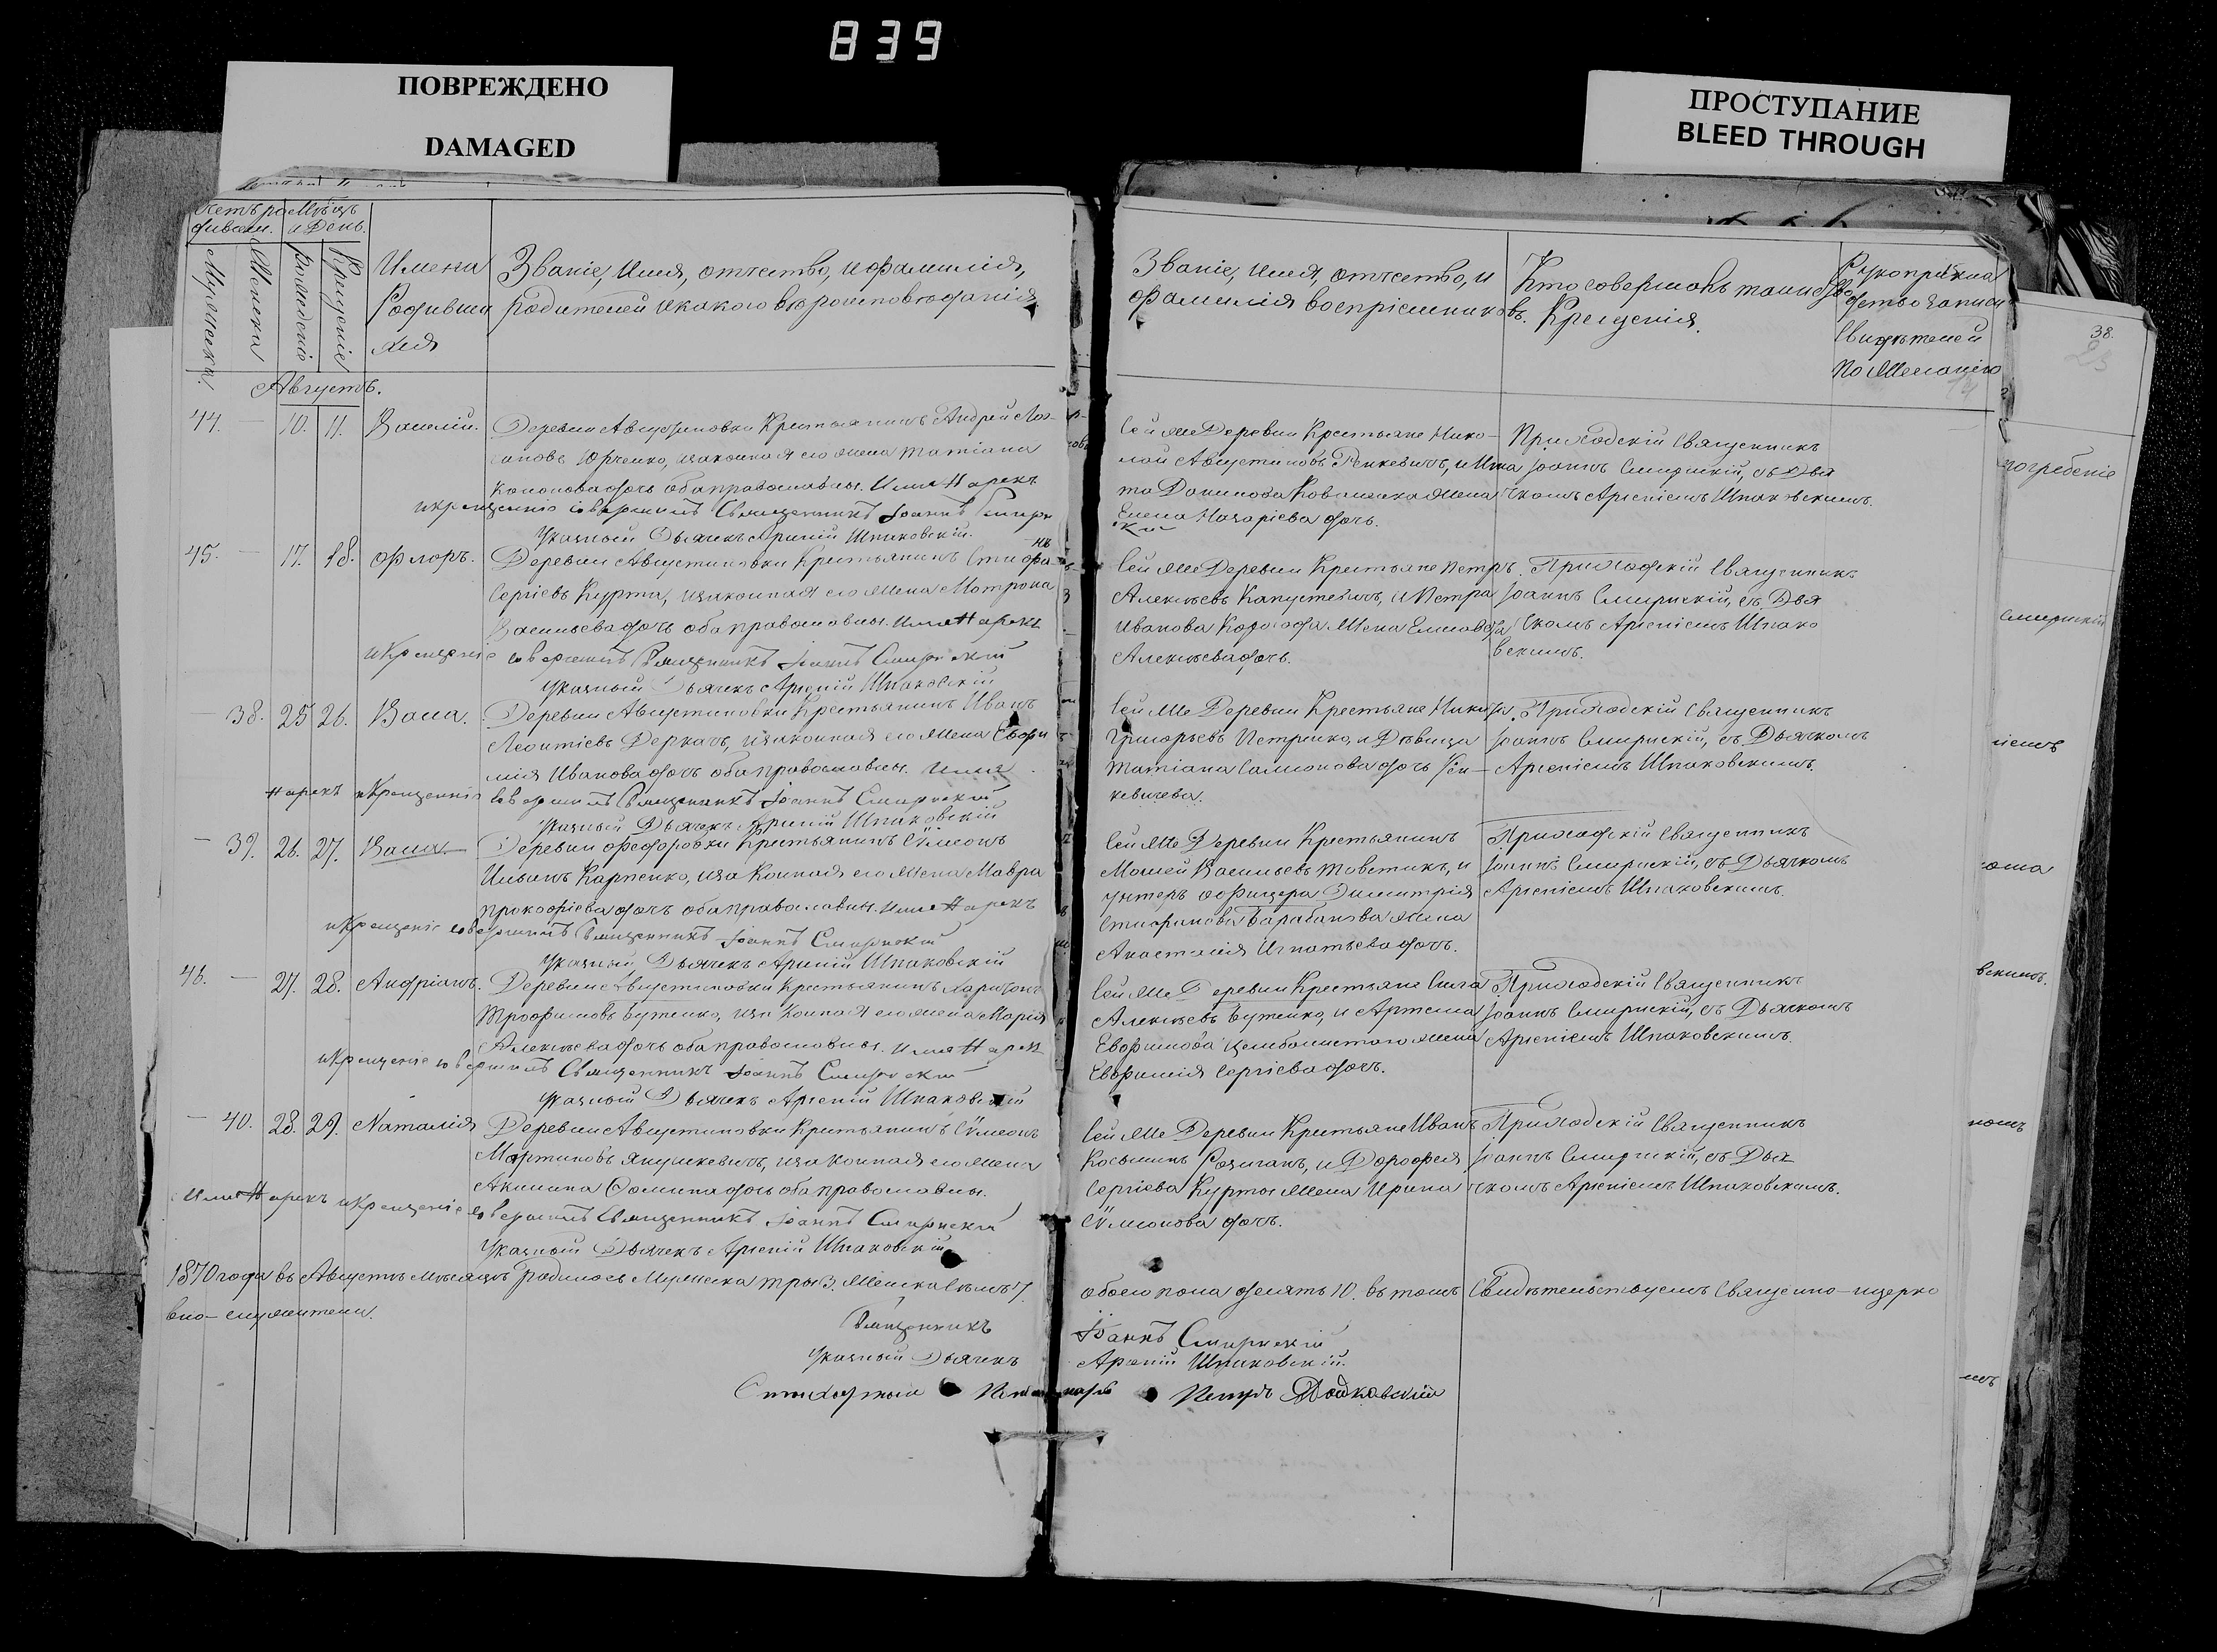 839
ПОВРЕЖДЕНО
DAMAGED
ПРОСТУПАНИЕ
BLEED THROUGH
Мѣсяцъ
и День.
Мужеска.
Женска
Рожденіе
Крещеніе
Имена
Родивши
хся
Званіе, Имя, отчество, и фамилія,
родителей и какого вѣроисповѣданія
Августъ.
44. — 10. 11. Василій.
Деревни Августиновки Крестьянинъ Андрей
Юрченко, и законная его жена Татіана
Кононова дочь оба православны. Имя Нарекъ
и крещеніе совершилъ Священникъ Іоаннъ
Указный Дьячекъ Арсеній Шпаковскій.
45. — 17. 18. Флоръ.
Деревни Августиновки Крестьянинъ
Сергіевъ Курта, и законная его жена Матрона
Васильева дочь оба православны. Имя Нарекъ
и Крещеніе совершилъ Священникъ Іоаннъ Смирнскій
Указный Дьячекъ Арсеній Шпаковскій
— 38. 25 26. Васса.
Деревни Августиновки Крестьянинъ Иванъ
Леонтіевъ Деркачъ, и законная его жена Евфи
мія Иванова дочь оба православны. Имя
Нарекъ и Крещеніе совершилъ Священникъ Іоаннъ Смирнскій
Указный Дьячекъ Арсеній Шпаковскій
— 39. 26. 27. Васса.
Деревни Федоровки Крестьянинъ Сѵмеонъ
Ильинъ Карпенко, и законная его жена Мавра
Прокофіева дочь оба православны. Имя Нарекъ
и Крещеніе совершилъ Священникъ Іоаннъ Смирнскій
Указный Дьячекъ Арсеній Шпаковскій
46. — 27. 28. Андріанъ.
Деревни Августиновки Крестьянинъ Харитонъ
Трофимовъ Бутенко, и законная его жена Марія
Алексѣева дочь оба православны. Имя Нарекъ
и крещеніе совершилъ Священникъ Іоаннъ Смирнскій
Указный Дьячекъ Арсеній Шпаковскій
— 40. 28. 29. Наталія
Деревни Августиновки Крестьянинъ Сѵмеонъ
Мартиновъ Янушкевичъ, и законная его жена
Акилина Фомина дочь оба православны.
Имя Нарекъ и Крещеніе совершилъ Священникъ Іоаннъ Смирнскій
Указный Дьячекъ Арсеній Шпаковскій
1870 года въ Августѣ Мѣсяцѣ родилось Мужеска три 3. Женска Семь 7.
вно-служители.
Священникъ
Указный Дьячекъ
Стихарный
Званіе, имя, отчество, и
фамилія воспріемниковъ.
Кто совершалъ таинство
Крещенія.
Рукоприкла
дство записи
Свидѣтелей
по Желанію
Сей же Деревни Крестьяне Нико-
лай Августиновъ Ренкевичъ, и Игна
та Данилова Коваленка жена
Елена Назаріева дочь.
Приходскій Священникъ
Іоаннъ Смирнскій, съ Дья
чкомъ Арсеніемъ Шпаковскимъ.
Сей же Деревни Крестьяне Петръ
Алексѣевъ Капустенко, и Петра
Иванова жена Елисавета
Алексѣева дочь.
Приходскій Священникъ
Іоаннъ Смирнскій, съ Дья
чкомъ Арсеніемъ Шпако
вскимъ.
Сей же Деревни Крестьяне Никита
Григорьевъ Петренко, и Дѣвица
Татіана Самсонова дочь Рен-
кевичева.
Приходскій Священникъ
Іоаннъ Смирнскій, съ Дьячкомъ
Арсеніемъ Шпаковскимъ.
Сей же Деревни Крестьянинъ
Моисей Васильевъ Товстикъ, и
унтеръ офицера Димитрія
Стефанова Барабанова жена
Анастасія Игнатьева дочь.
Приходскій Священникъ
Іоаннъ Смирнскій, съ Дьячкомъ
Арсеніемъ Шпаковскимъ.
Сей же Деревни Крестьяне Сила
Алексѣевъ Бутенко, и Артема
Евфимова жена
Евфимія Сергіева дочь.
Приходскій Священникъ
Іоаннъ Смирнскій, съ Дьячкомъ
Арсеніемъ Шпаковскимъ.
Сей же Деревни Крестьяне Иванъ
Косьминъ и Дорофея
Сергіева Курты жена Ирина
Сѵмеонова дочь.
Приходскій Священникъ
Іоаннъ Смирнскій, съ Дья
чкомъ Арсеніемъ Шпаковскимъ.
обоего пола десять 10. въ томъ Свидѣтельствуемъ Священно-церко
Іоаннъ Смирнскій
Арсеній Шпаковскій.
Петръ
38.
23
погребеніе
Смирнскій
вскимъ.